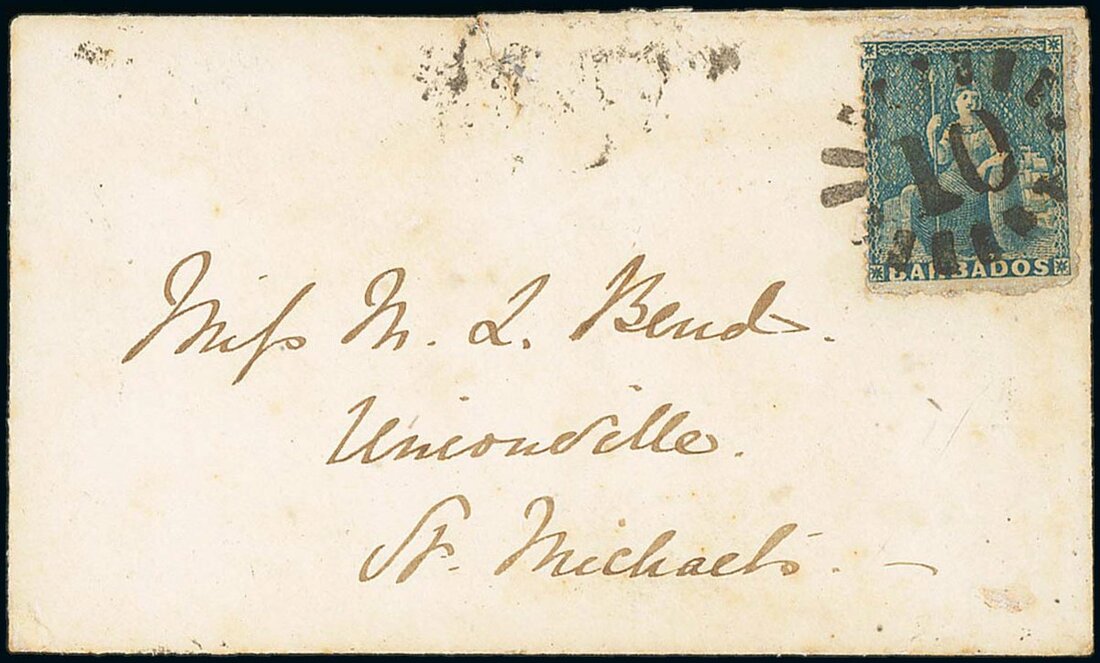 10
BARBADOS
Miss M. L. Bend.
Unionville.
St. Michael's. —